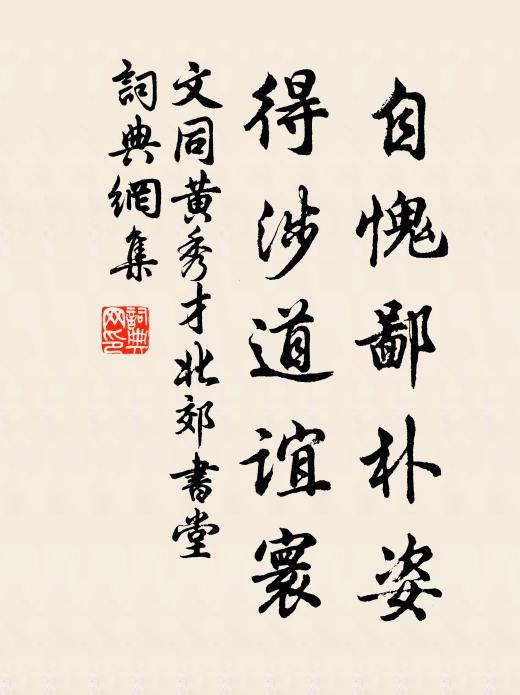 自愧鄙朴姿
得涉道誼寰
文同黃秀才北郊書堂
詞典網集
詞典网印